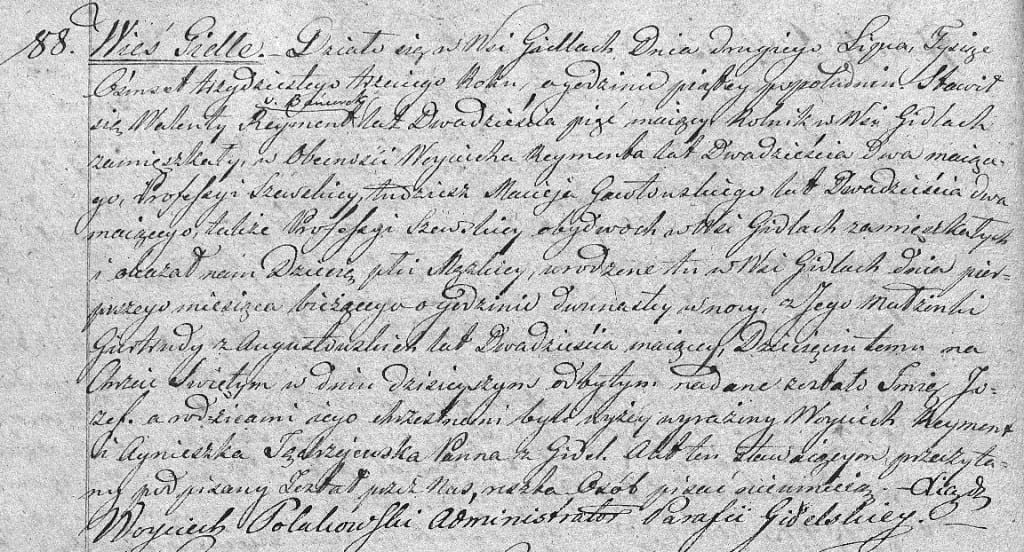 188. Wieś Gielle. – Działo się w Wsi Gidlach Dnia drugiego Lipca, Tysiąc
Ośmset trzydziestego trzeciego Roku, o godzinie piątey popołudniu. Stawił
v. Baniewski
się Walenty Reyment lat Dwadzieścia pięć maiący Rolnik w Wsi Gidlach
zamieszkały, w Obecności Woyciecha Reymenta lat Dwadzieścia dwa maiące-
go, Professyi Szewskiey, tudzież Macieja Gawłowskiego lat Dwadzieścia dwa
maiącego, także Professyi Szewskiey obydwoch w Wsi Gidlach zamieszkałych
i okazał nam Dziecię płci Męzkiey, urodzone tu w Wsi Gidlach dnia pier-
wszego miesiąca bieżącego o godzinie dwunastey w nocy, z Jego Małżonki
Giertrudy z Augustowskich lat Dwadzieścia maiącey, Dziecięciu temu na
Chrzcie Świętym w dniu dzisieyszym odbytym nadane zostało Imię Jo-
zef. a rodzicami jego chrzestnemi byli wyżey wyrażony Woyciech Reyment
i Agnieszka Jędrzejewska Panna z Gidel. Akt ten stawaiącym przeczyta-
ny podpisany Został przez Nas, reszta Osób pisać nieumieią –
Woyciech Polakowski Administrator Parafii Gidelskiey. –